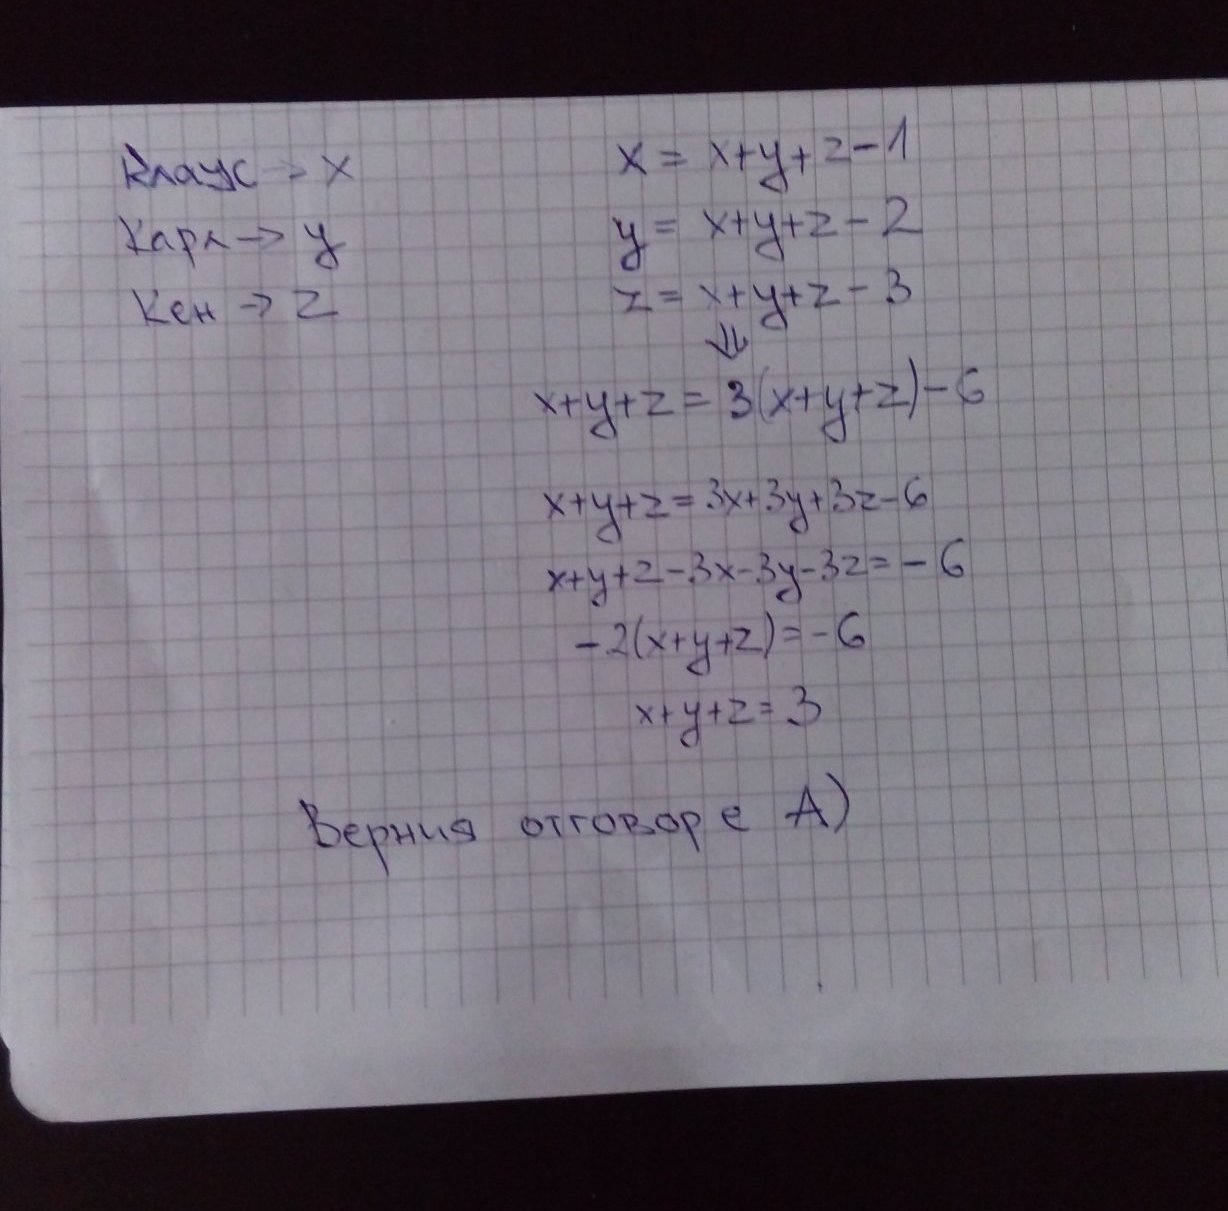 Клаус → x
x = x+y+z-1
Карл → y
y = x+y+z-2
Кен → z
z = x+y+z-3
⇓
x+y+z = 3(x+y+z)-6
x+y+z=3x+3y+3z-6
x+y+z-3x-3y-3z=-6
-2(x+y+z)=-6
x+y+z=3
Верния отговор е А)